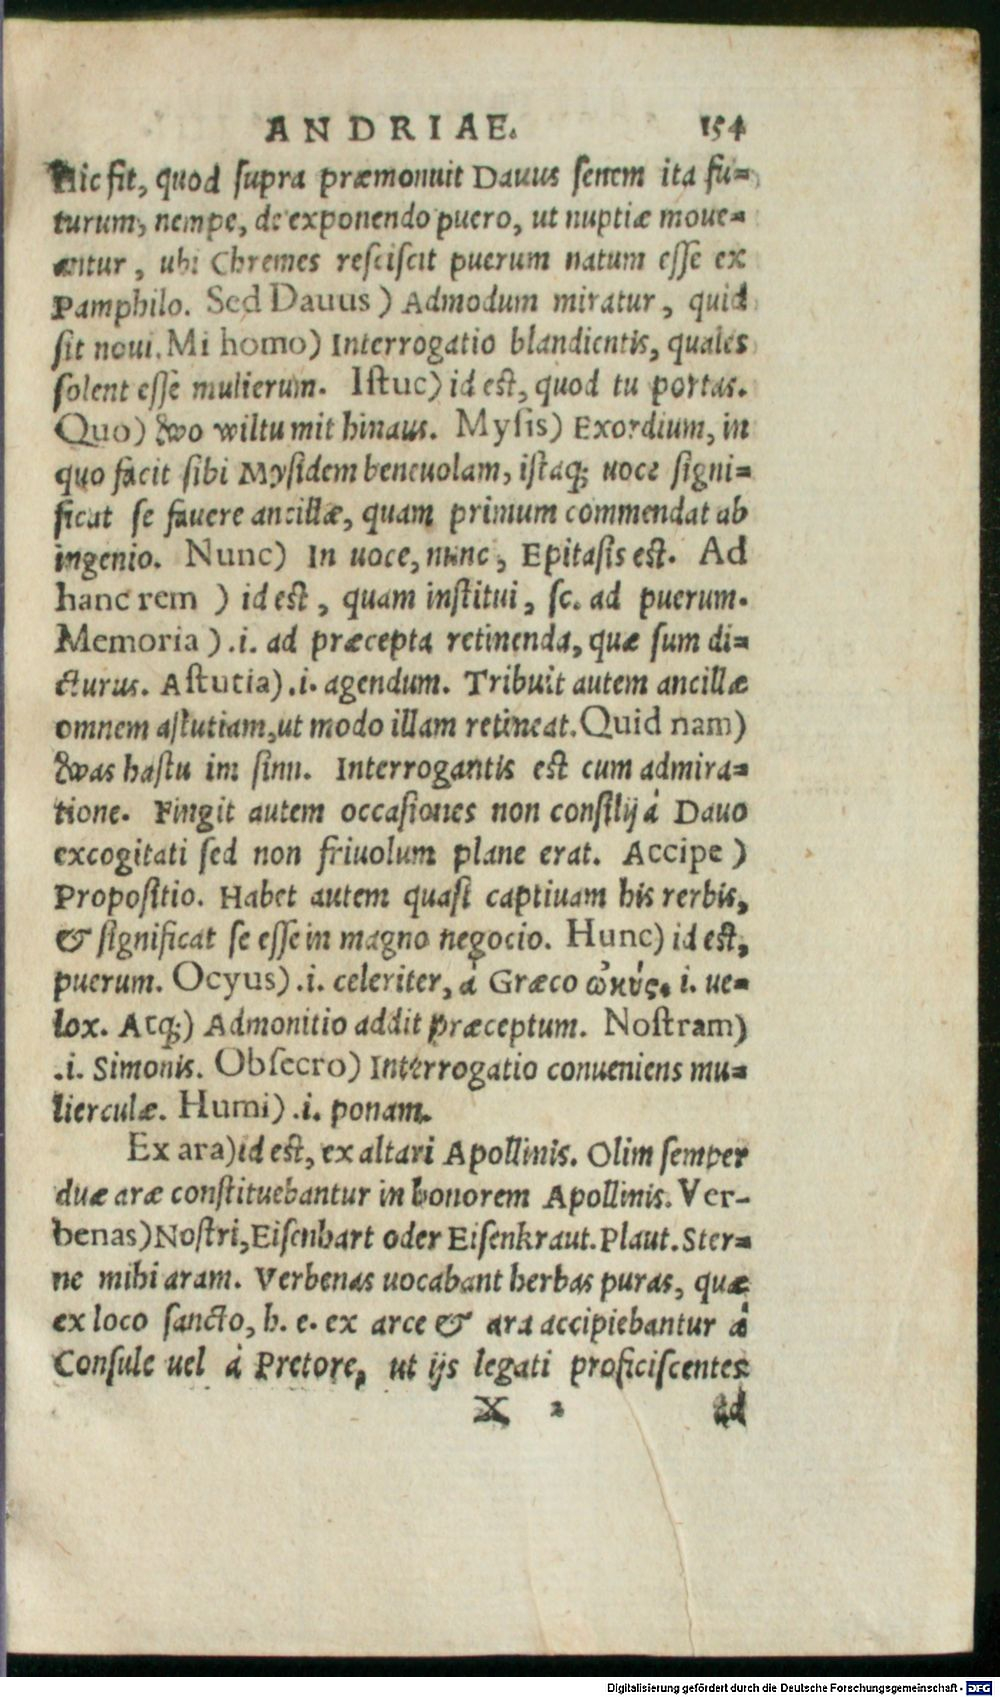 ANDRIAE. 154
Hic fit, quod supra præmonuit Dauus senem ita fu=
turum, nempe, de exponendo puero, ut nuptiæ moue=
antur, ubi Chremes resciscit puerum natum esse ex
Pamphilo. Sed Dauus) Admodum miratur, quid
sit noui. Mi homo) Interrogatio blandientis, quales
solent esse mulierum. Istuc) id est, quod tu portas.
Quo) Wo wiltu mit hinaus. Mysis) Exordium, in
quo facit sibi Mysidem beneuolam, istaq; uoce signi=
ficat se fauere ancillæ, quam primum commendat ab
ingenio. Nunc) In uoce, nunc, Epitasis est. Ad
hanc rem ) id est, quam institui, sc. ad puerum.
Memoria ) .i. ad præcepta retinenda, quæ sum di=
cturus. Astutia) .i. agendum. Tribuit autem ancillæ
omnem astutiam, ut modo illam retineat. Quid nam)
Was hastu im sinn. Interrogantis est cum admira=
tione. Fingit autem occasiones non consilij à Dauo
excogitati sed non friuolum plane erat. Accipe )
Propositio. Habet autem quasi captiuam his rerbis,
& significat se esse in magno negocio. Hunc) id est,
puerum. Ocyus) .i. celeriter, à Græco ὠκύς. i. ue=
lox. Atq;) Admonitio addit præceptum. Nostram)
.i. Simonis. Obsecro) Interrogatio conueniens mu=
lierculæ. Humi) .i. ponam.
Ex ara) id est, ex altari Apollinis. Olim semper
duæ aræ constituebantur in honorem Apollinis. Ver-
benas) Nostri, Eisenhart oder Eisenkraut. Plaut. Ster=
ne mihi aram. Verbenas uocabant herbas puras, quæ
ex loco sancto, h. e. ex arce & ara accipiebantur à
Consule uel à Pretore, ut ijs legati proficiscentes
X 2 ad
Digitalisierung gefördert durch die Deutsche Forschungsgemeinschaft - DFG